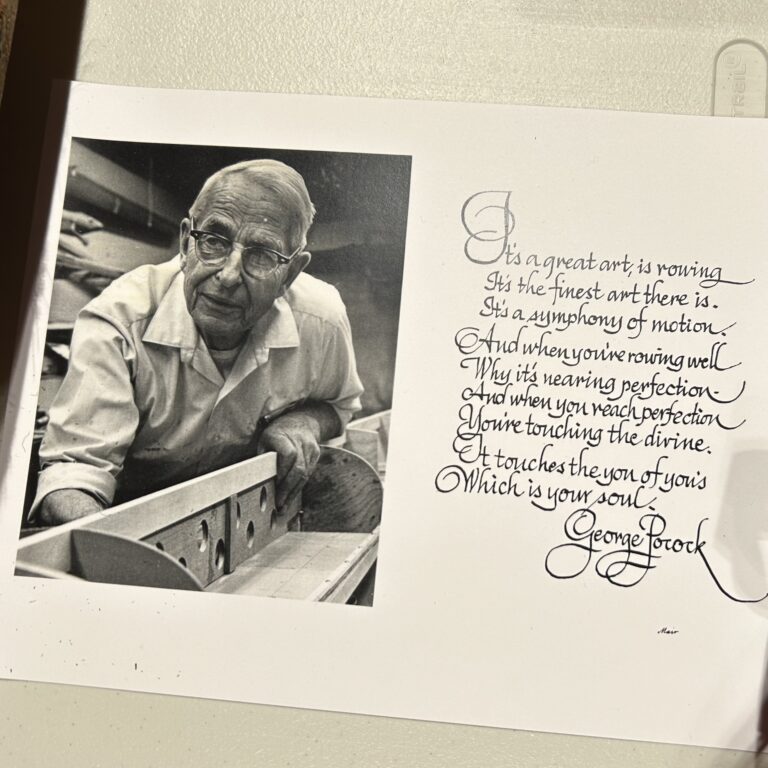 It's a great art, is rowing
It's the finest art there is.
It's a symphony of motion.
And when you're rowing well
Why it's nearing perfection-
And when you reach perfection
You're touching the divine.
It touches the you of you's
Which is your soul.
George Pocock